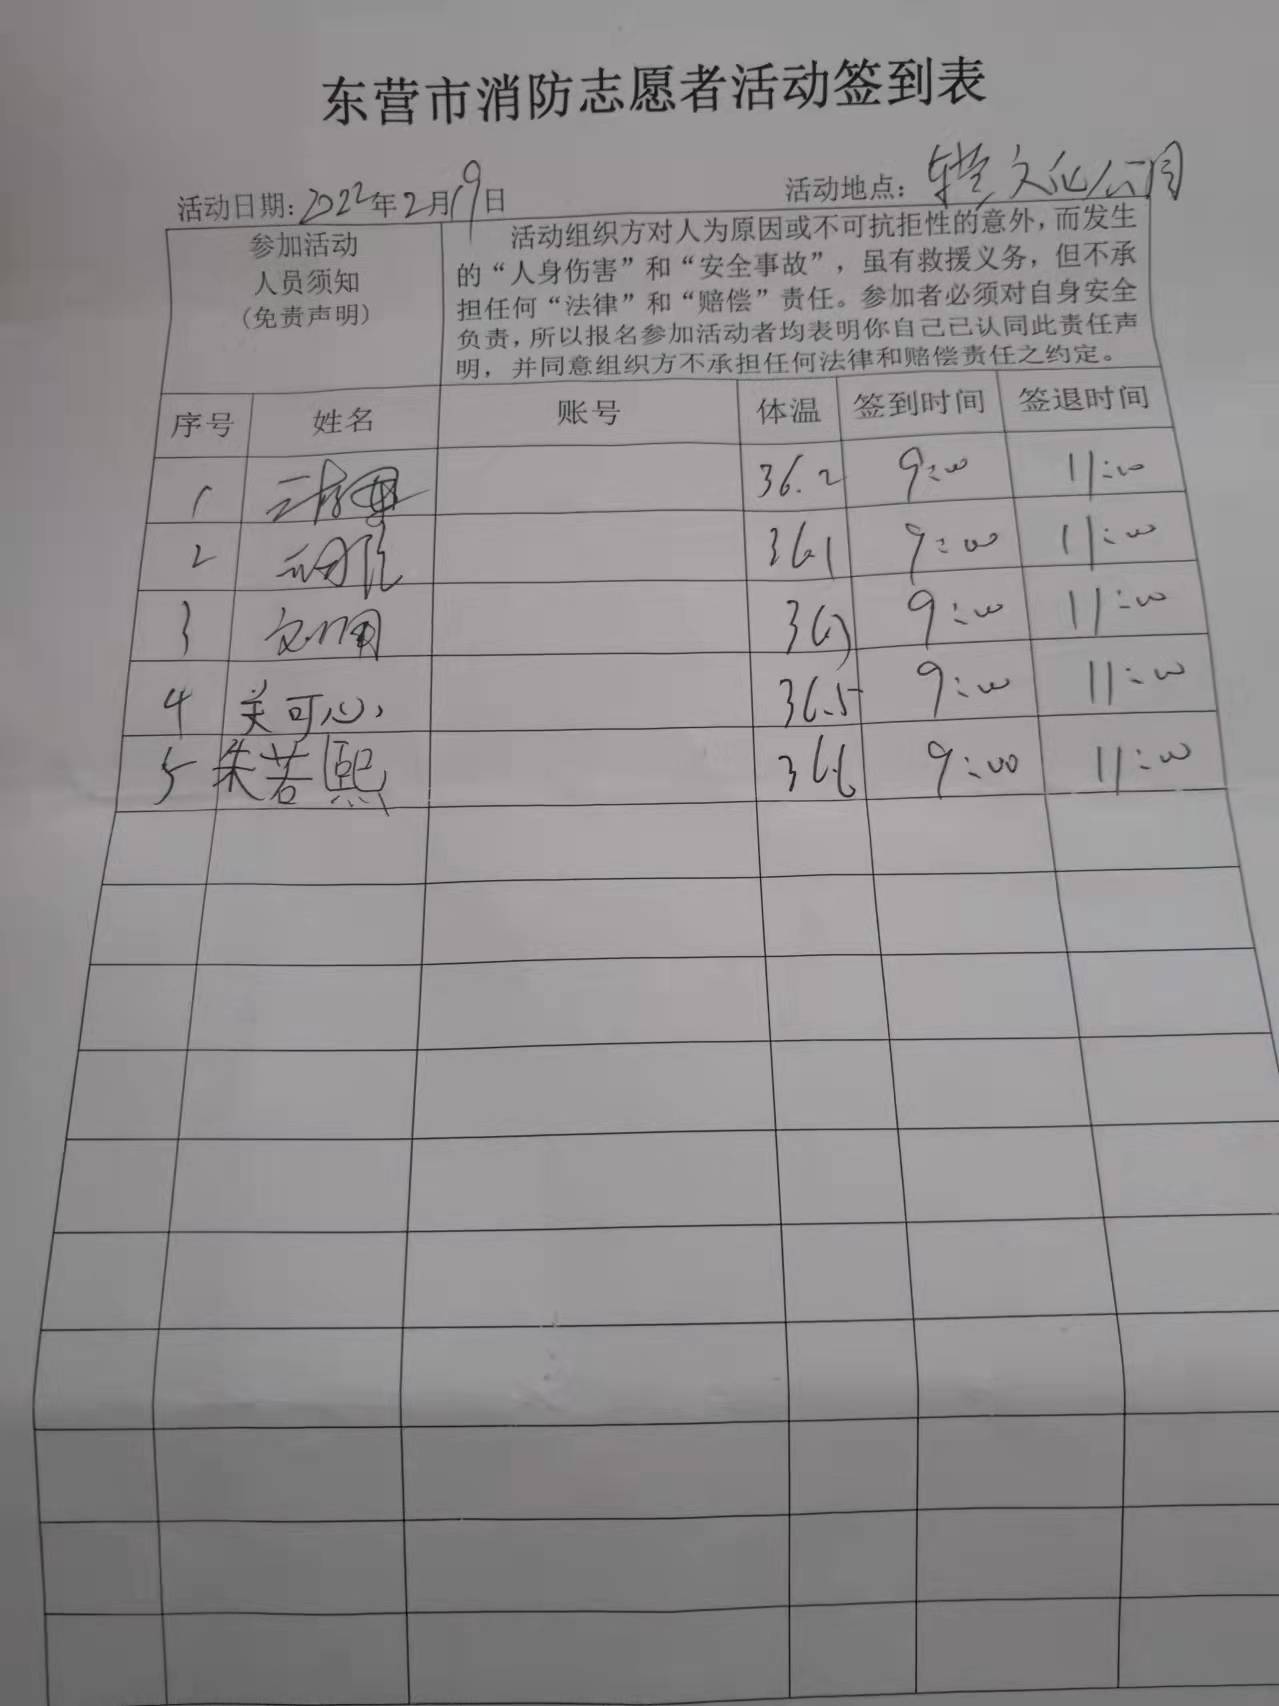 东营市消防志愿者活动签到表
活动日期:2022年2月19日 活动地点:东营文化公园
参加活动
人员须知
(免责声明)
活动组织方对人为原因或不可抗拒性的意外,而发生
的“人身伤害”和“安全事故”,虽有救援义务,但不承
担任何“法律”和“赔偿”责任。参加者必须对自身安全
负责,所以报名参加活动者均表明你自己己认同此责任声
明,并同意组织方不承担任何法律和赔偿责任之约定。
序号 姓名 账号 体温 签到时间 签退时间
1 36.2 9:00 11:00
2 36.1 9:00 11:00
3 9:00 11:00
4 关可心 36.5 9:00 11:00
5 朱若熙 36.6 9:00 11:00